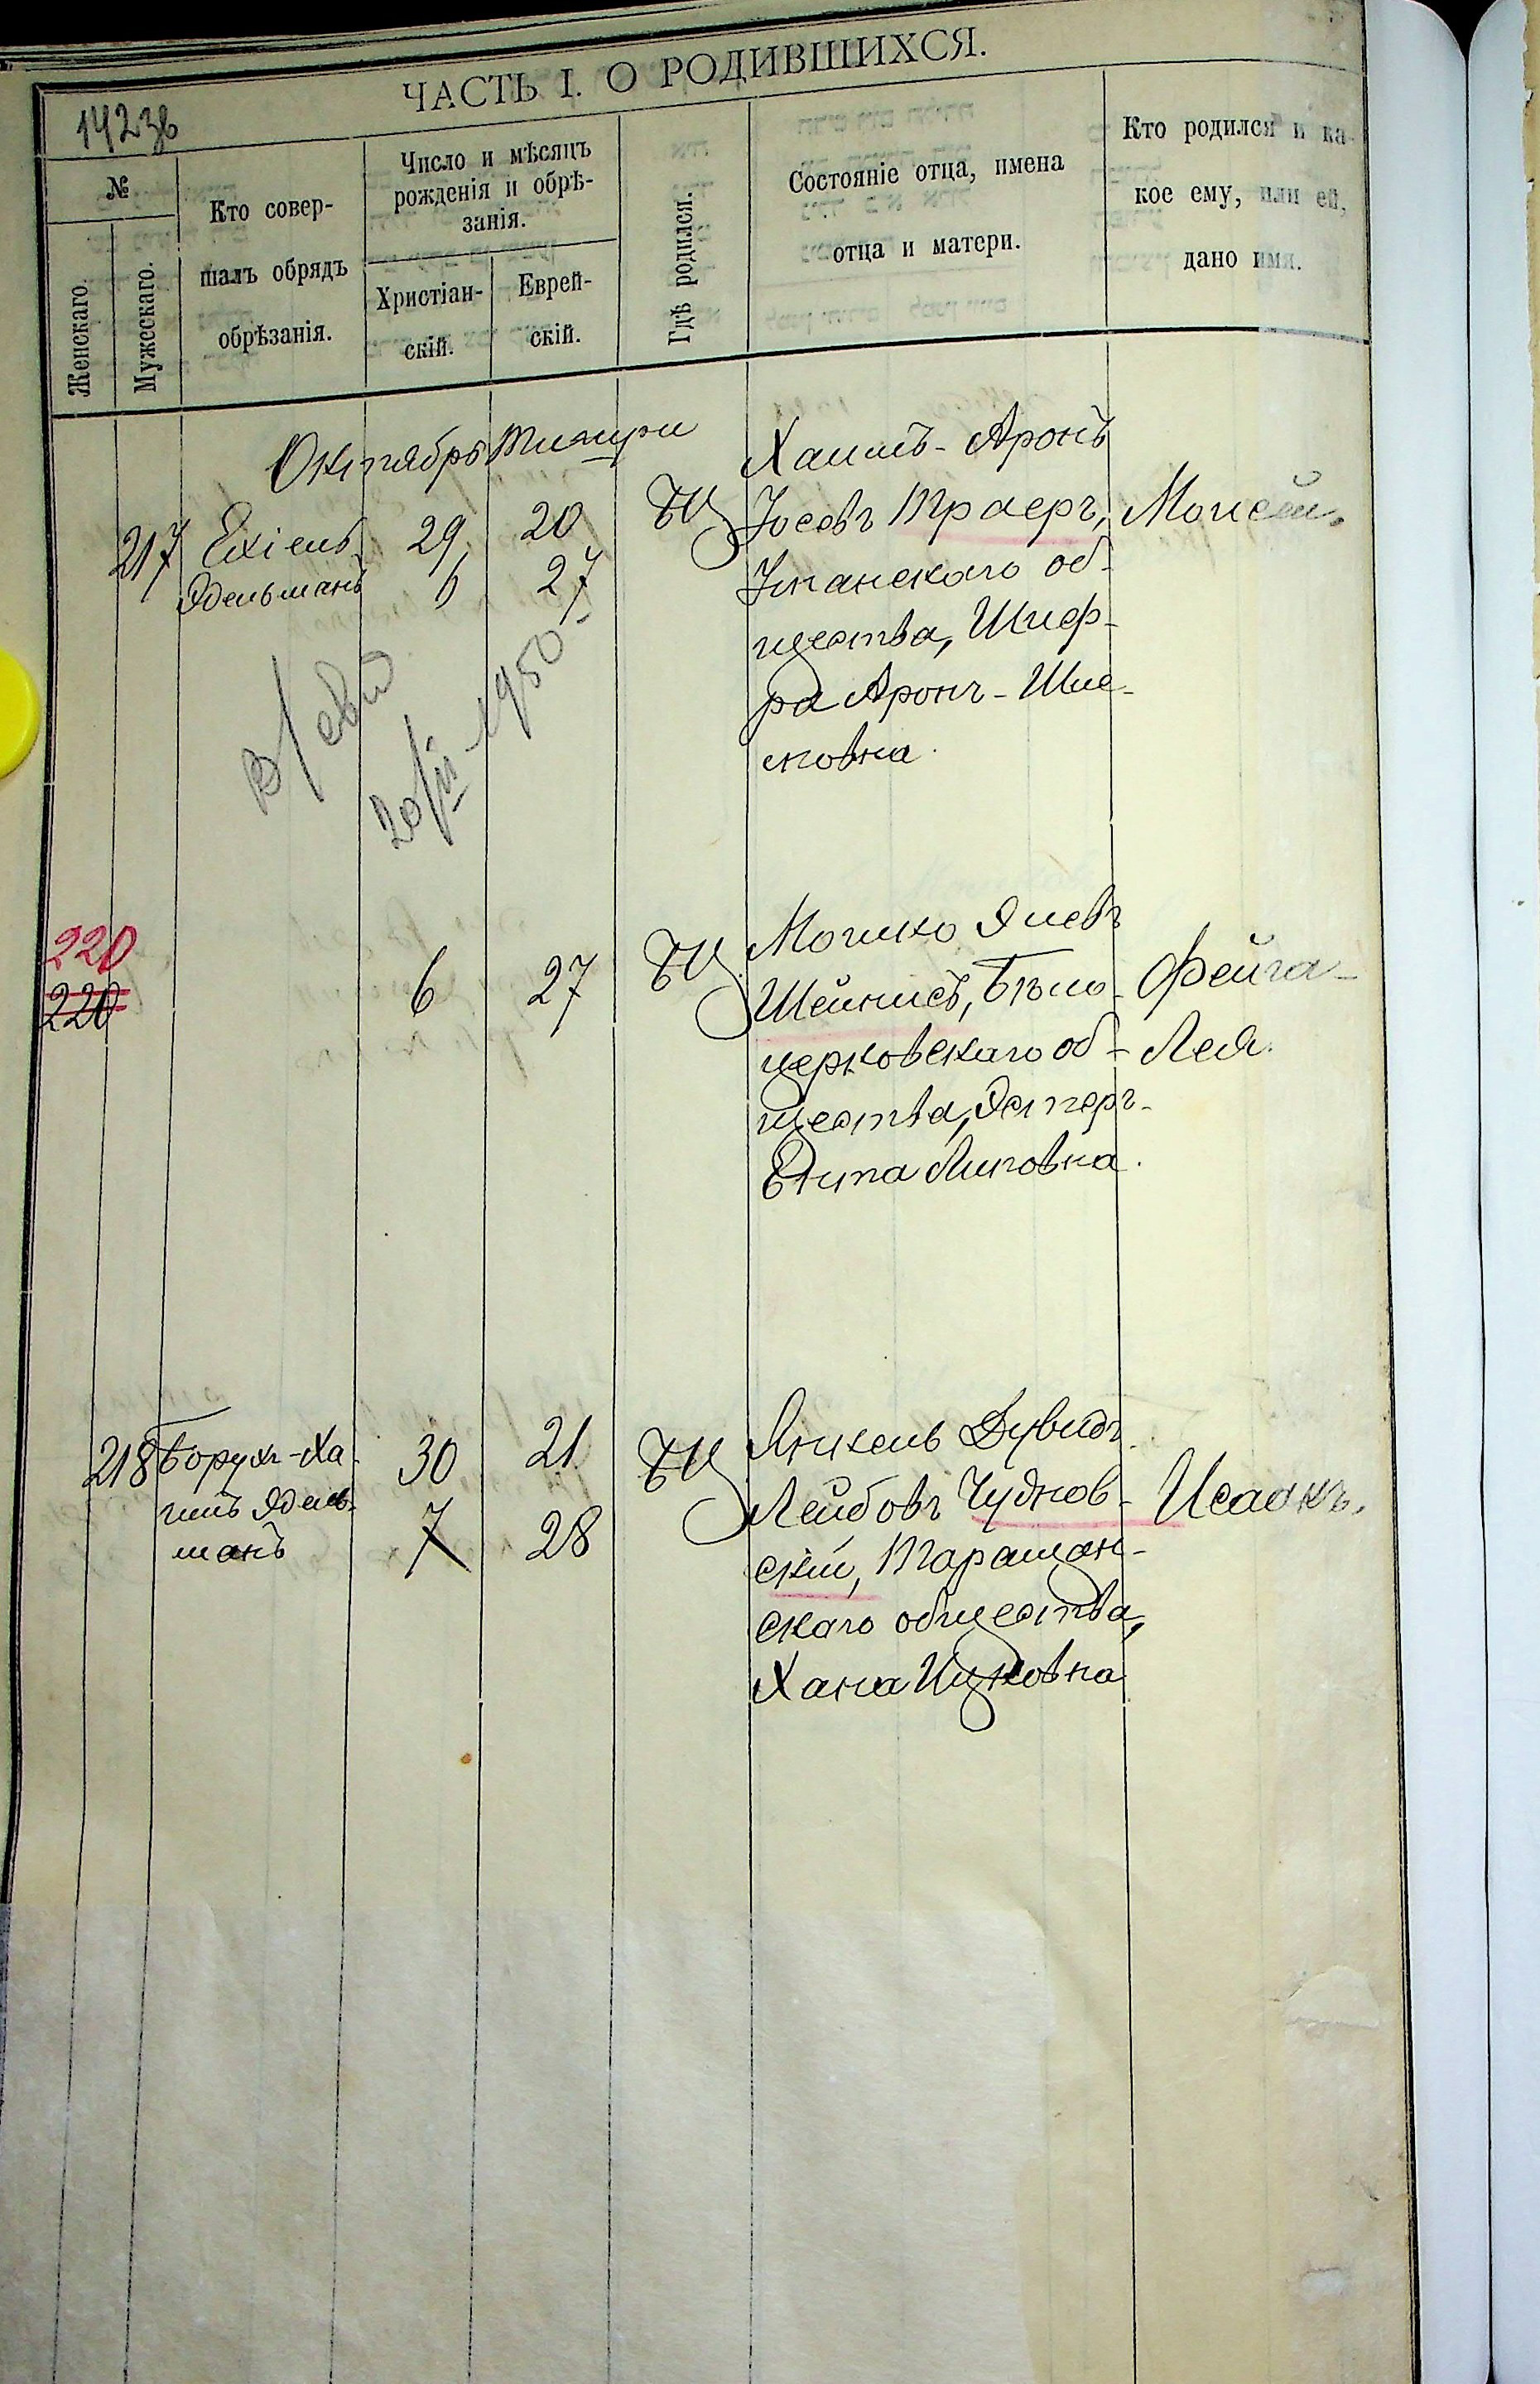 ЧАСТЬ I. О РОДИВШИХСЯ.
1423в
№
Женскаго.
Мужескаго.
Кто совер-
шалъ обрядъ
обрѣзанія.
Число и мѣсяцъ
рожденія и обрѣ-
занія.
Христіан-
скій.
Еврей-
скій.
Гдѣ родился.
Состояніе отца, имена
отца и матери.
Кто родился и ка-
кое ему, или ей,
дано имя.
Октябрь Тишри
217 Ехіель
Эдельманъ
29
6
20
27
БЦ
Хаимъ-Аронъ
Іосевъ Траеръ,
Уманскаго об-
щества, Шиф-
ра Аронъ-Шле-
мовна.
Моисей.
20/II-1950
220
220
6
27
БЦ
Мошко Элевъ
Шейнисъ, Бѣло-
церковскаго об-
щества, Эстеръ-
Ента Липовна.
Фейга-
Лея.
218 Борухъ-Ха
имъ Эдель-
манъ
30
7
21
28
БЦ
Янкель Дувидъ
Лейбовъ Чуднов-
скій, Таращан-
скаго общества,
Хана Ицковна
Исаакъ.